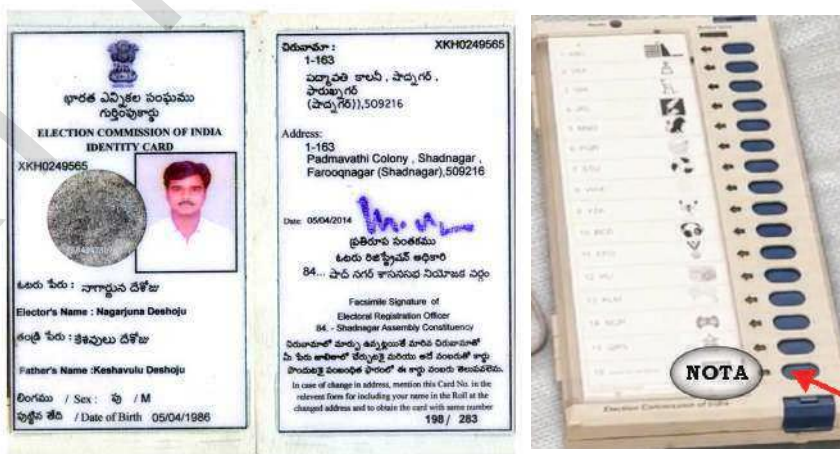 భారత ఎన్నికల సంఘము
గుర్తింపుకార్డు
ELECTION COMMISSION OF INDIA
IDENTITY CARD
XKH0249565
ఓటరు పేరు : నాగార్జున దేశోజు
Elector's Name : Nagarjuna Deshoju
తండ్రి పేరు : కేశవులు దేశోజు
Father's Name :Keshavulu Deshoju
లింగము / Sex : పు / M
పుట్టిన తేది / Date of Birth 05/04/1986
చిరునామా : XKH0249565
1-163
పద్మావతి కాలనీ , షాద్నగర్ ,
ఫారుఖ్నగర్
(షాద్నగర్)),509216
Address:
1-163
Padmavathi Colony , Shadnagar ,
Farooqnagar (Shadnagar),509216
Date: 05/04/2014
ప్రతిరూప సంతకము
ఓటరు రిజిస్ట్రేషన్ అధికారి
84... షాద్ నగర్ శాసనసభ నియోజక వర్గం
Facsimile Signature of
Electoral Registration Officer
84. - Shadnagar Assembly Constituency
చిరునామాలో మార్పు ఉన్నట్లయితే మారిన చిరునామాతో
మీ పేరు జాబితాలో చేర్చుటకై మరియు అదే నంబరుతో కార్డు
పొందుటకై సంబంధిత ఫారంలో ఈ కార్డు నంబరు తెలుపవలెను.
In case of change in address, mention this Card No. in the
relevent form for including your name in the Roll at the
changed address and to obtain the card with same number
198 / 283
NOTA
Election Commission of India